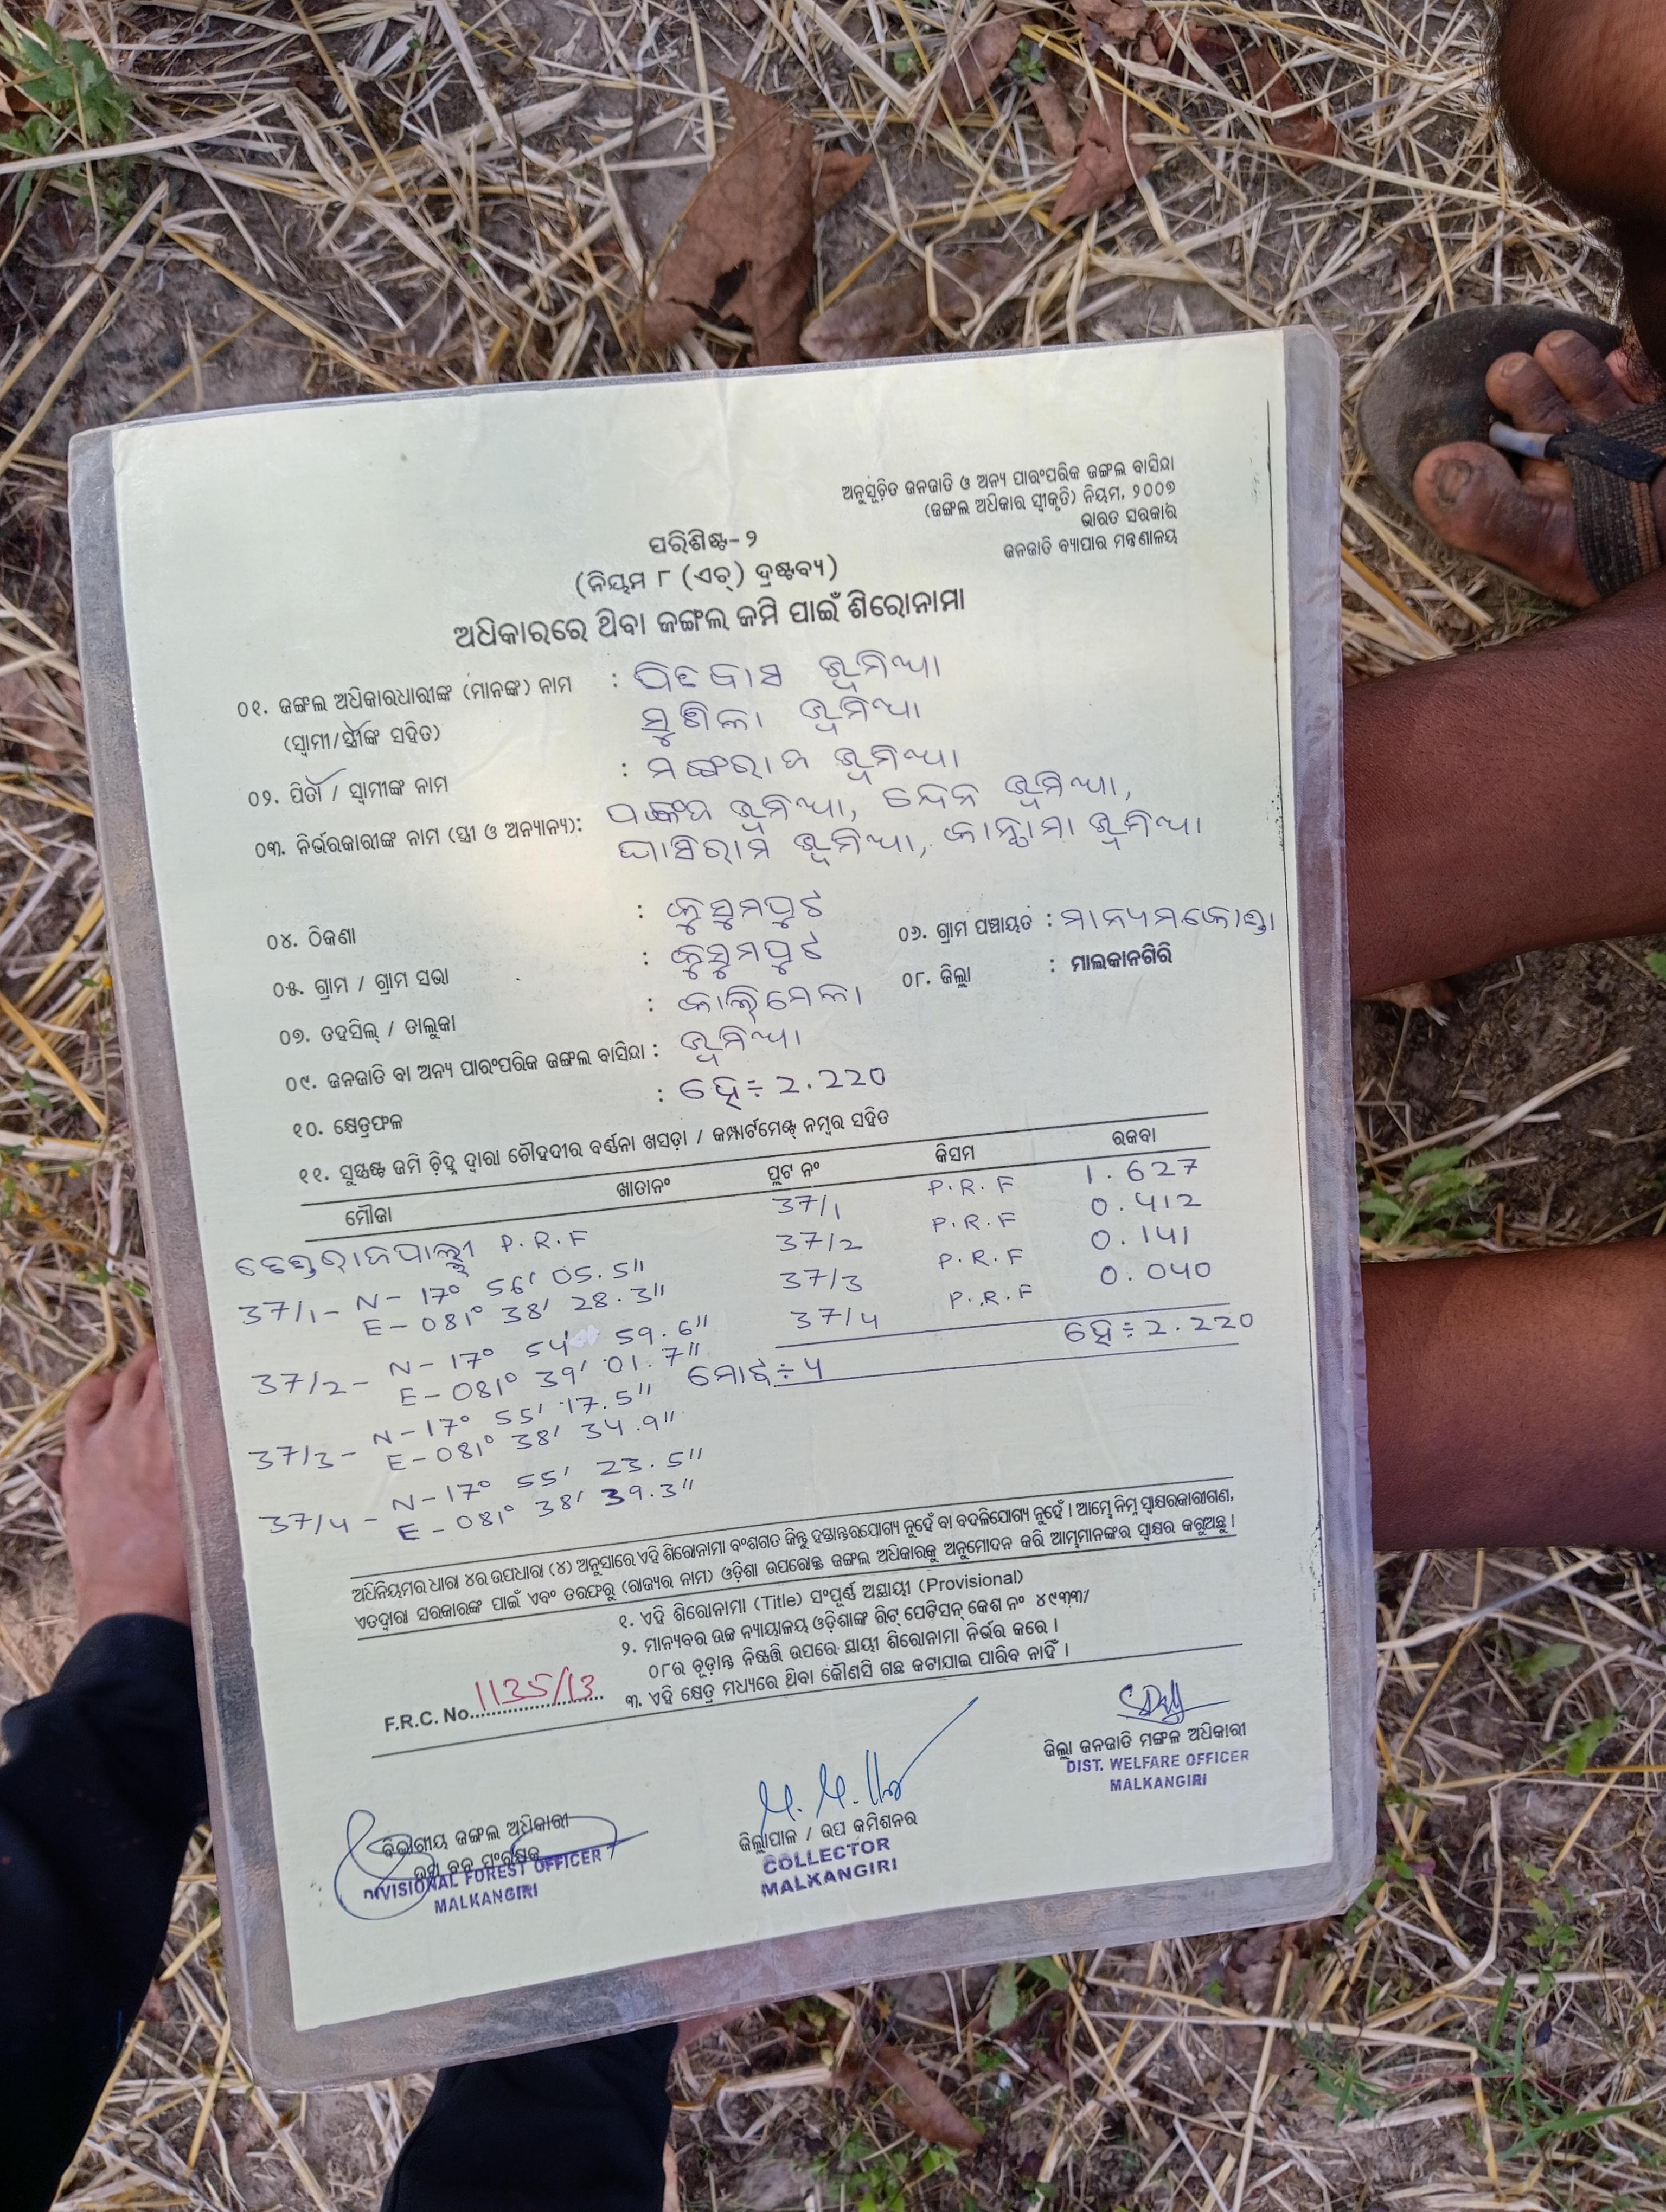 ଅନୁସୂଚିତ ଜନଜାତି ଓ ଅନ୍ୟ ପାରଂପରିକ ଜଙ୍ଗଲ ବାସିନ୍ଦା
(ଜଙ୍ଗଲ ଅଧିକାର ସ୍ୱୀକୃତି) ନିୟମ, ୨୦୦୭
ଭାରତ ସରକାର
ଜନଜାତି ବ୍ୟାପାର ମନ୍ତ୍ରଣାଳୟ
ପରିଶିଷ୍ଟ-୨
(ନିୟମ ୮ (ଏଚ୍) ଦ୍ରଷ୍ଟବ୍ୟ)
ଅଧିକାରରେ ଥିବା ଜଙ୍ଗଲ ଜମି ପାଇଁ ଶିରୋନାମା
୦୧. ଜଙ୍ଗଲ ଅଧିକାରଧାରୀଙ୍କ (ମାନଙ୍କ) ନାମ :
(ସ୍ୱାମୀ/ସ୍ତ୍ରୀଙ୍କ ସହିତ) ସୁଶିଳା ଭୂମିଆ
୦୨. ପିତା / ସ୍ୱାମୀଙ୍କ ନାମ : ମଙ୍ଗରାଜ ଭୂମିଆ
୦୩. ନିର୍ଭରକାରୀଙ୍କ ନାମ (ସ୍ତ୍ରୀ ଓ ଅନ୍ୟାନ୍ୟ): ପଙ୍କଜ ଭୂମିଆ, ଭୂମିଆ,
ଘାସିରାମ ଭୂମିଆ, ଭୂମିଆ
୦୪. ଠିକଣା : କୁସୁମପୁଟ
୦୫. ଗ୍ରାମ / ଗ୍ରାମ ସଭା : କୁସୁମପୁଟ ୦୬. ଗ୍ରାମ ପଞ୍ଚାୟତ : ମାନ୍ୟମକୋଣ୍ଡା
୦୭. ତହସିଲ୍ / ତାଲୁକା : କାଲିମେଳା ୦୮. ଜିଲ୍ଲା : ମାଲକାନଗିରି
୦୯. ଜନଜାତି ବା ଅନ୍ୟ ପାରଂପରିକ ଜଙ୍ଗଲ ବାସିନ୍ଦା : ଭୂମିଆ
୧୦. କ୍ଷେତ୍ରଫଳ : ହେ÷2.220
୧୧. ସୁସ୍ପଷ୍ଟ ଜମି ଚିହ୍ନ ଦ୍ୱାରା ଚୌହଦୀର ବର୍ଣ୍ଣନା ଖସଡ଼ା / କମ୍ପାର୍ଟମେଣ୍ଟ୍ ନମ୍ବର ସହିତ
ମୌଜା ଖାତାନଂ ପ୍ଲଟ ନଂ କିସମ ରକବା
P.R.F 37/1 P.R.F 1.627
37/2 P.R.F 0.412
37/3 P.R.F 0.141
37/4 P.R.F 0.040
ମୋଟ÷4 ହେ÷2.220
37/1- N-17° 56' 05.5"
E-081° 38' 28.3"
37/2- N-17° 54' 59.6"
E-081° 39' 01.7"
37/3- N-17° 55' 17.5"
E-081° 38' 34.9"
37/4- N-17° 55' 23.5"
E-081° 38' 39.3"
ଅଧିନିୟମର ଧାରା ୪ର ଉପଧାରା (୪) ଅନୁସାରେ ଏହି ଶିରୋନାମା ବଂଶଗତ କିନ୍ତୁ ହସ୍ତାନ୍ତରଯୋଗ୍ୟ ନୁହେଁ ବା ବଦଳିଯୋଗ୍ୟ ନୁହେଁ । ଆମ୍ଭେ ନିମ୍ନ ସ୍ୱାକ୍ଷରକାରୀଗଣ,
ଏତଦ୍ୱାରା ସରକାରଙ୍କ ପାଇଁ ଏବଂ ତରଫରୁ (ରାଜ୍ୟର ନାମ) ଓଡ଼ିଶା ଉପରୋକ୍ତ ଜଙ୍ଗଲ ଅଧିକାରକୁ ଅନୁମୋଦନ କରି ଆମ୍ଭମାନଙ୍କର ସ୍ୱାକ୍ଷର କରୁଅଛୁ ।
୧. ଏହି ଶିରୋନାମା (Title) ସଂପୂର୍ଣ୍ଣ ଅସ୍ଥାୟୀ (Provisional)
୨. ମାନ୍ୟବର ଉଚ୍ଚ ନ୍ୟାୟାଳୟ ଓଡ଼ିଶାଙ୍କ ରିଟ୍ ପେଟିସନ୍ କେଶ ନଂ ୪୯୩୩/
୦୮ର ଚୂଡ଼ାନ୍ତ ନିଷ୍ପତ୍ତି ଉପରେ ସ୍ଥାୟୀ ଶିରୋନାମା ନିର୍ଭର କରେ ।
୩. ଏହି କ୍ଷେତ୍ର ମଧ୍ୟରେ ଥିବା କୌଣସି ଗଛ କଟାଯାଇ ପାରିବ ନାହିଁ ।
F.R.C. No. 1135/13
ଜିଲ୍ଲା ଜନଜାତି ମଙ୍ଗଳ ଅଧିକାରୀ
DIST. WELFARE OFFICER
MALKANGIRI
ଜିଲ୍ଲାପାଳ / ଉପ କମିଶନର
COLLECTOR
MALKANGIRI
ବିଭାଗୀୟ ଜଙ୍ଗଲ ଅଧିକାରୀ
ଉପ ବନ ସଂରକ୍ଷକ
DIVISIONAL FOREST OFFICER
MALKANGIRI